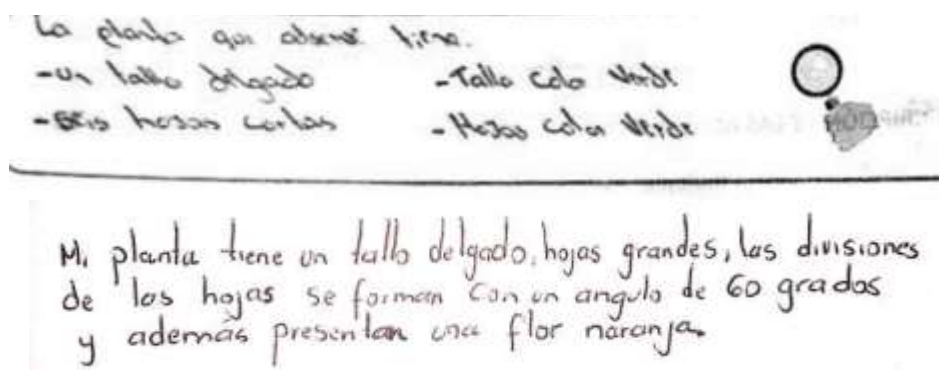 La planta que observé tiene.
-un tallo delgado -Tallo Colo Verde
-seis hojas cortas -Hojas Color Verde
Mi planta tiene un tallo delgado, hojas grandes, las divisiones
de las hojas se forman con un angulo de 60 grados
y además presentan una flor naranja.